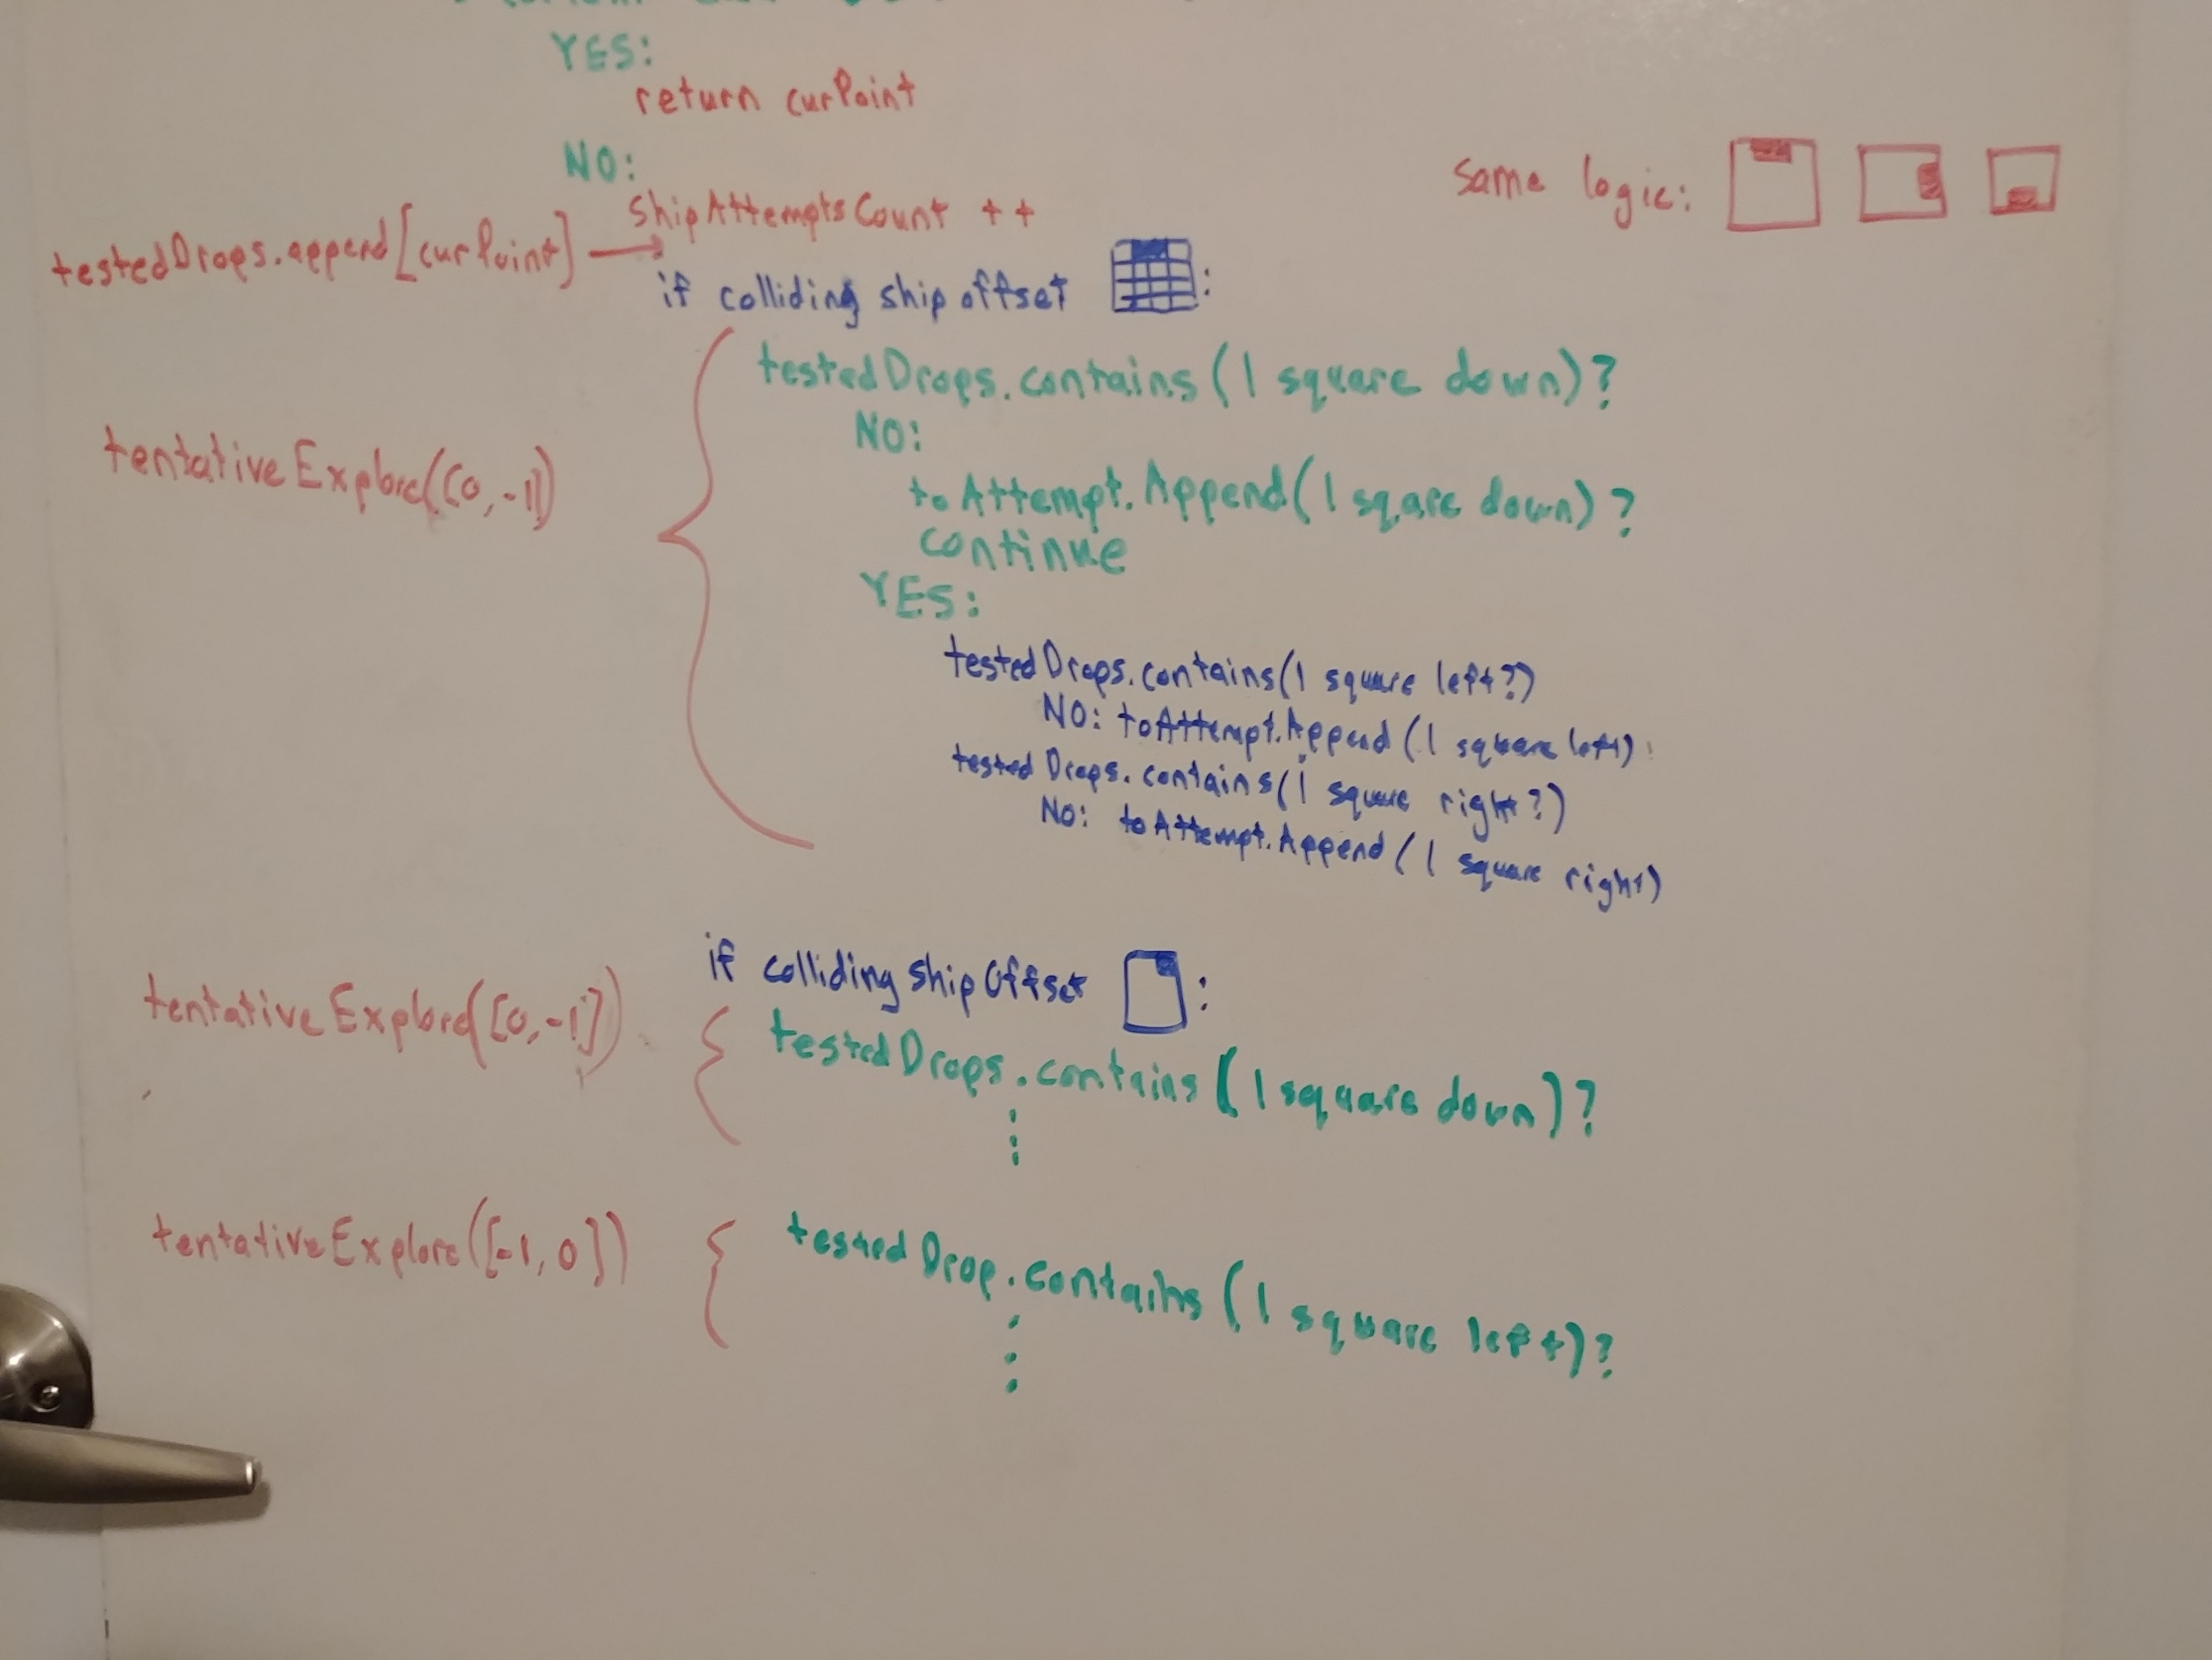 YES:
return curPoint
NO:
same logic:
ShipAttemptsCount ++
testedDrops.append[curPoint]
if colliding ship offset :
testedDrops.contains(1 square down)?
NO:
tentativeExplore([0,-1])
toAttempt.Append(1 sqare down)?
continue
YES:
testedDrops.contains(1 square left?)
NO: toAttempt.Append(1 square left)
tested Drops.contains(1 square right?)
NO: toAttempt.Append(1 square right)
if colliding ship Offset :
tentativeExplore([0,-1])
testedDrops.contains(1 square down)?
tentativeExplore([-1,0])
testedDrop.contains(1 square left)?